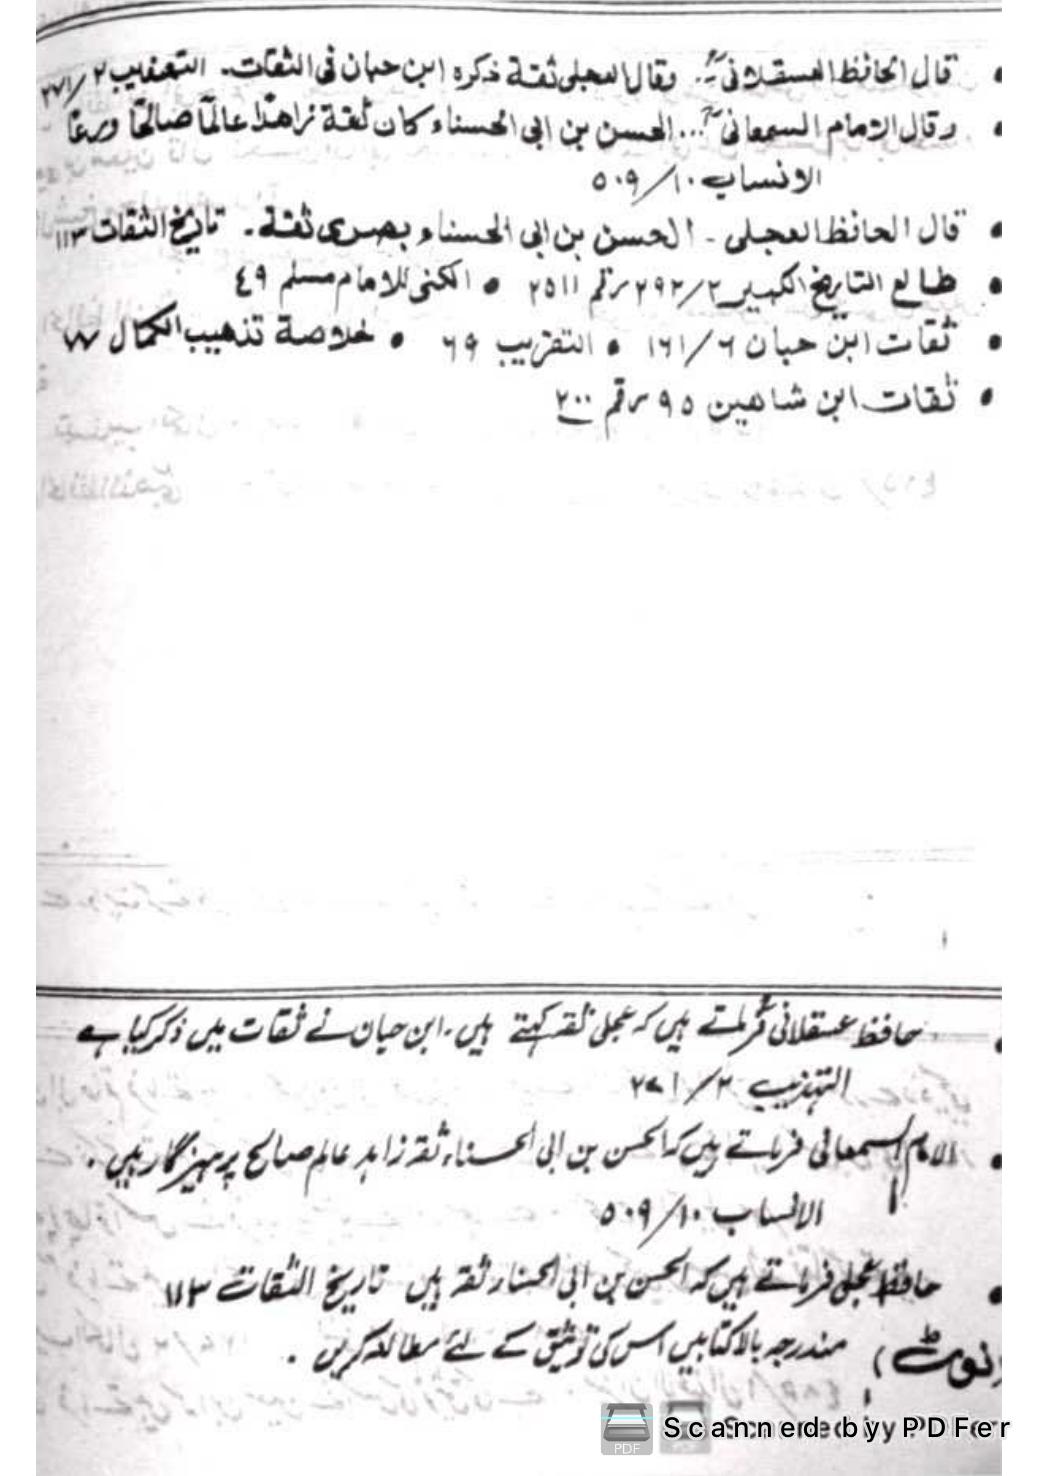 • قال الحافظ العسقلانیؒ. وقال العجلی ثقة ذکره ابن حبان فی الثقات. التهذیب ۲/۲۷۱
• وقال الامام السمعانیؒ... الحسن بن ابی الحسناء کان ثقة زاهدًا عالمًا صالحًا ورعًا
الانساب ۱۰/۵۰۹
• قال الحافظ العجلی - الحسن بن ابی الحسناء بصری ثقة. تاریخ الثقات ۱۱۳
• طالع التاریخ الکبیر ۲/۲۹۲ رقم ۲۵۱۱ • الکنی للامام مسلم ۴۹
• ثقات ابن حبان ۶/۱۶۱ • التقریب ۶۹ • خلاصة تذهیب الکمال ۷۷
• ثقات ابن شاهین ۹۵ رقم ۲۰۰
• حافظ عسقلانیؒ فرماتے ہیں کہ عجلی ثقہ کہتے ہیں۔ ابن حبان نے ثقات میں ذکر کیا ہے
التہذیب ۲/۲۷۱
• الامام السمعانی فرماتے ہیں کہ الحسن بن ابی الحسناء ثقہ زاہد عالم صالح پرہیزگار ہیں۔
الانساب ۱۰/۵۰۹
• حافظ عجلی فرماتے ہیں کہ الحسن بن ابی الحسنار ثقہ ہیں تاریخ الثقات ۱۱۳
(نوٹ) مندرجہ بالا کتابیں اس کی توثیق کے لئے مطالعہ کریں۔
Scanned by PDFer